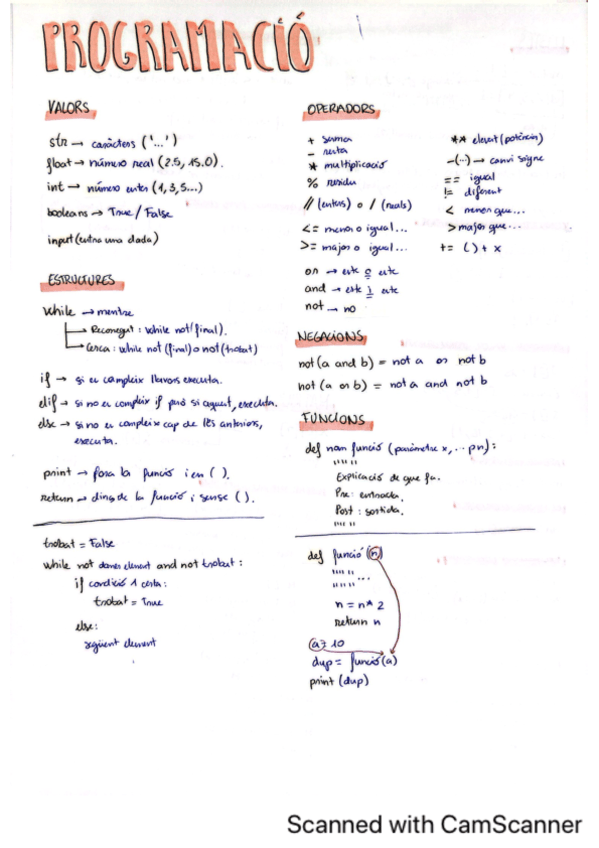 PROGRAMACIÓ
VALORS
str → caràcters ('...')
float → número real (2.5, 15.0).
int → número enter (1,3,5...)
booleans → True / False
input (entra una dada)
ESTRUCTURES
while → mentre
Recorregut : while not (final).
Cerca : while not (final) o not (trobat)
if → si es compleix llavors executa.
elif → si no es compleix if però si aquest, executa.
else → si no es compleix cap de les anteriors,
executa.
print → fora la funció i en ( ).
return → dins de la funció i sense ( ).
trobat = False
while not darrer element and not trobat :
if condició 1 certa :
trobat = True
else :
següent element
OPERADORS
+ suma
- resta
* multiplicació
% residu
// (enters) o / (reals)
<= menor o igual...
>= major o igual...
or → este o este
and → este i este
not → no
** elevat (potència)
-(...) → canvi signe
== igual
!= diferent
< menor que...
> major que...
+= ( ) + x
NEGACIONS
not (a and b) = not a or not b
not (a or b) = not a and not b
FUNCIONS
def nom funció (paràmetre x, ... pn) :
"" "" ""
Explicació de que fa.
Pre : entrada.
Post : sortida.
"" "" ""
def funció (n)
"" "" ""
"" "" "" ...
n = n * 2
return n
a = 10
dup = funció (a)
print (dup)
Scanned with CamScanner